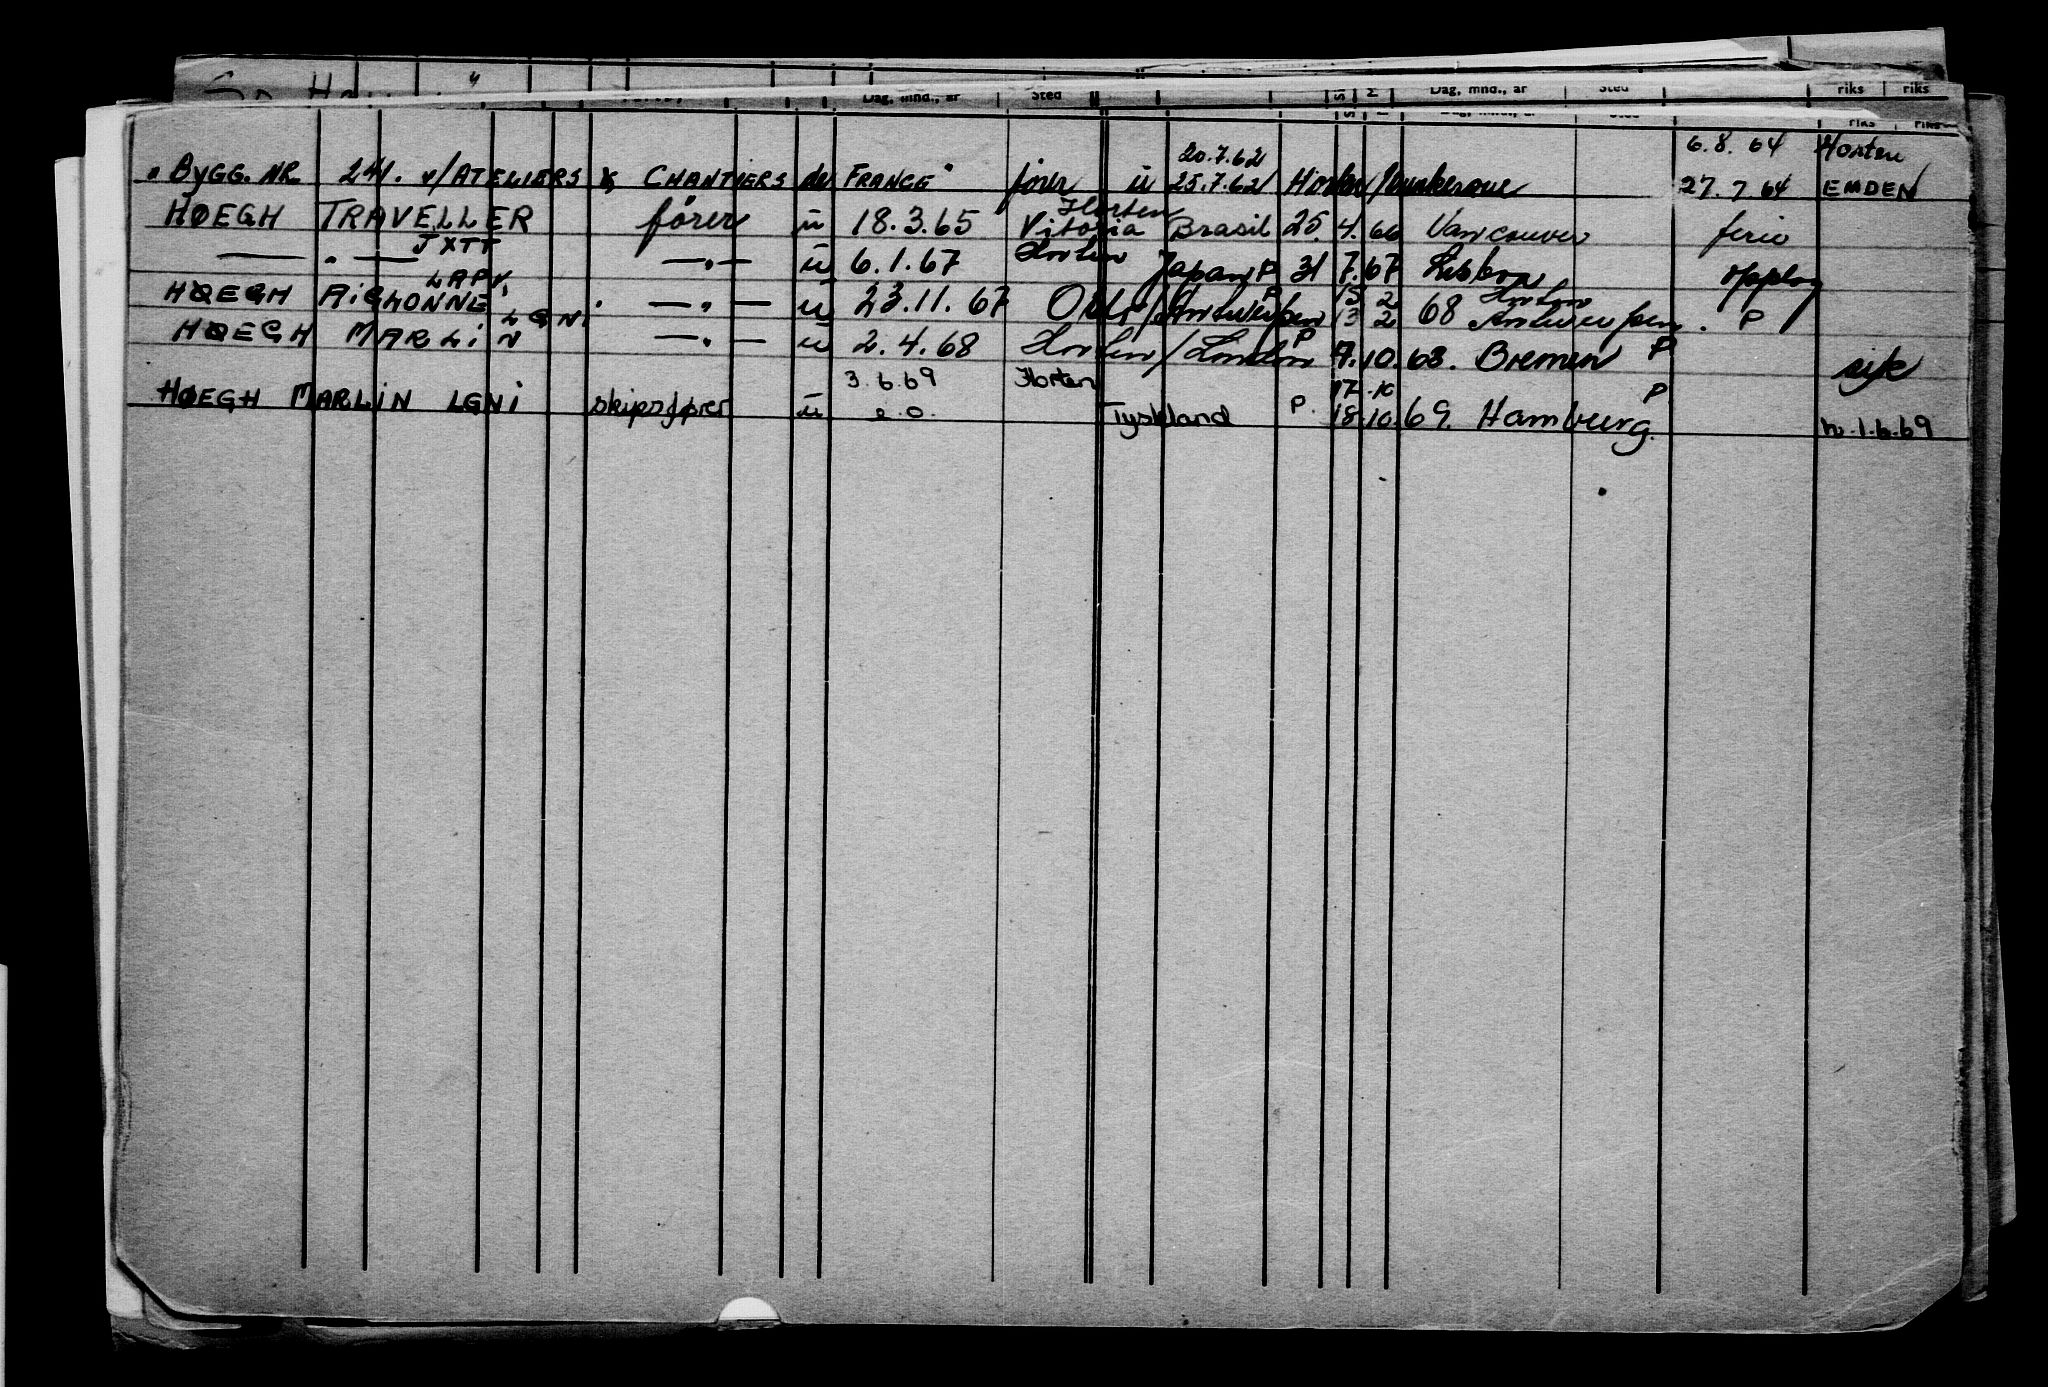 Dag, mnd., år Sted Dag, mnd., år Sted riks riks
riks riks
20.7.62 6.8.64 Horten
"BYGG. NR 241. v/ATELIERS & CHANTIERS de FRANCE" fører u 25.7.62 Horten/Dunkerque 27.7.64 EMDEN
Horten
HØEGH TRAVELLER fører u 18.3.65 Vitoria Brasil 25. 4. 66 Vancouver ferie
JXTT
—„— —„— u 6.1.67 Horten Japan P 31 7.67 Lisboa opplag
LAPV. 15 2 Horten
HØEGH AIGLONNE —„— u 23.11.67 Oslo/Antwerpen P 13 2 68 Antwerpen. P
LGNI
HØEGH MARLIN —„— u 2.4.68 Horten/London P 9.10.68. Bremen P syk
3.6.69 Horten 17.10 P
HØEGH MARLIN LGNI skipsfører u Tyskland P. 18.10.69. Hamburg. 1.6.69